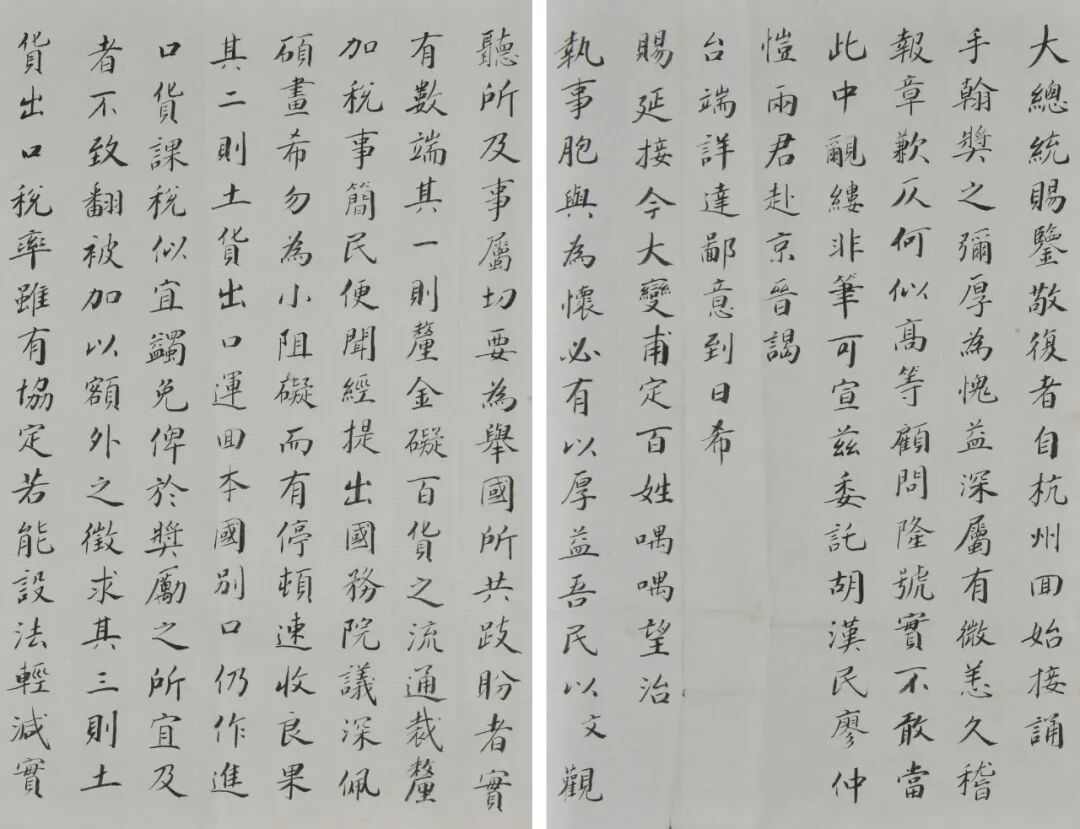 大總統賜鑒敬復者自杭州回始接誦
手翰獎之彌厚為愧益深屬有微恙久稽
報章歉仄何似高等顧問隆號實不敢當
此中覼縷非筆可宣茲委託胡漢民廖仲
愷兩君赴京晉謁
台端詳達鄙意到日希
賜延接今大變甫定百姓喁喁望治
執事胞與為懷必有以厚益吾民以文觀
聽所及事屬切要為舉國所共跂盼者實
有數端其一則釐金礙百貨之流通裁釐
加稅事簡民便聞經提出國務院議深佩
碩畫希勿為小阻礙而有停頓速收良果
其二則土貨出口運回本國別口仍作進
口貨課稅似宜蠲免俾於獎勵之所宜及
者不致翻被加以額外之徵求其三則土
貨出口稅率雖有協定若能設法輕減實